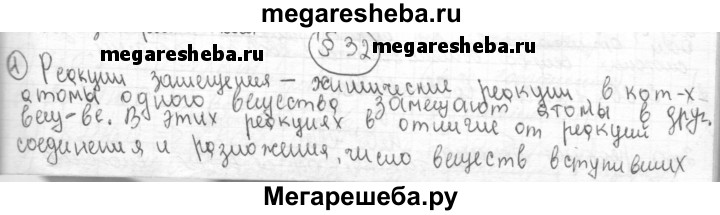 megaresheba.ru
megaresheba.ru § 32 megaresheba.ru
1) Реакции замещения – химические реакции в кот-х
атомы одного вещества замещают атомы в друг.
вещ-ве. В этих реакциях в отличие от реакций
соединения и разложения, число веществ вступивших
Мегарешеба.ру